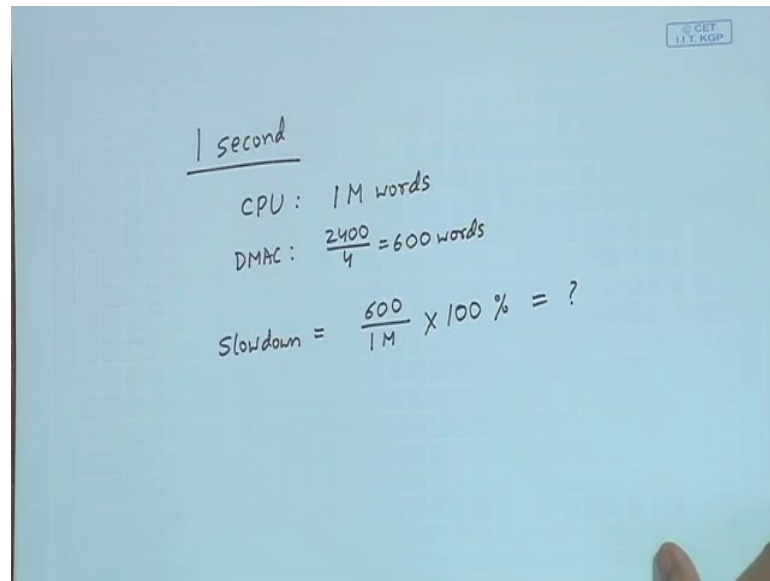 © CET
I.I.T. KGP
1 second
CPU : 1 M words
DMAC : 2400/4 = 600 words
Slowdown = 600/1 M × 100 % = ?